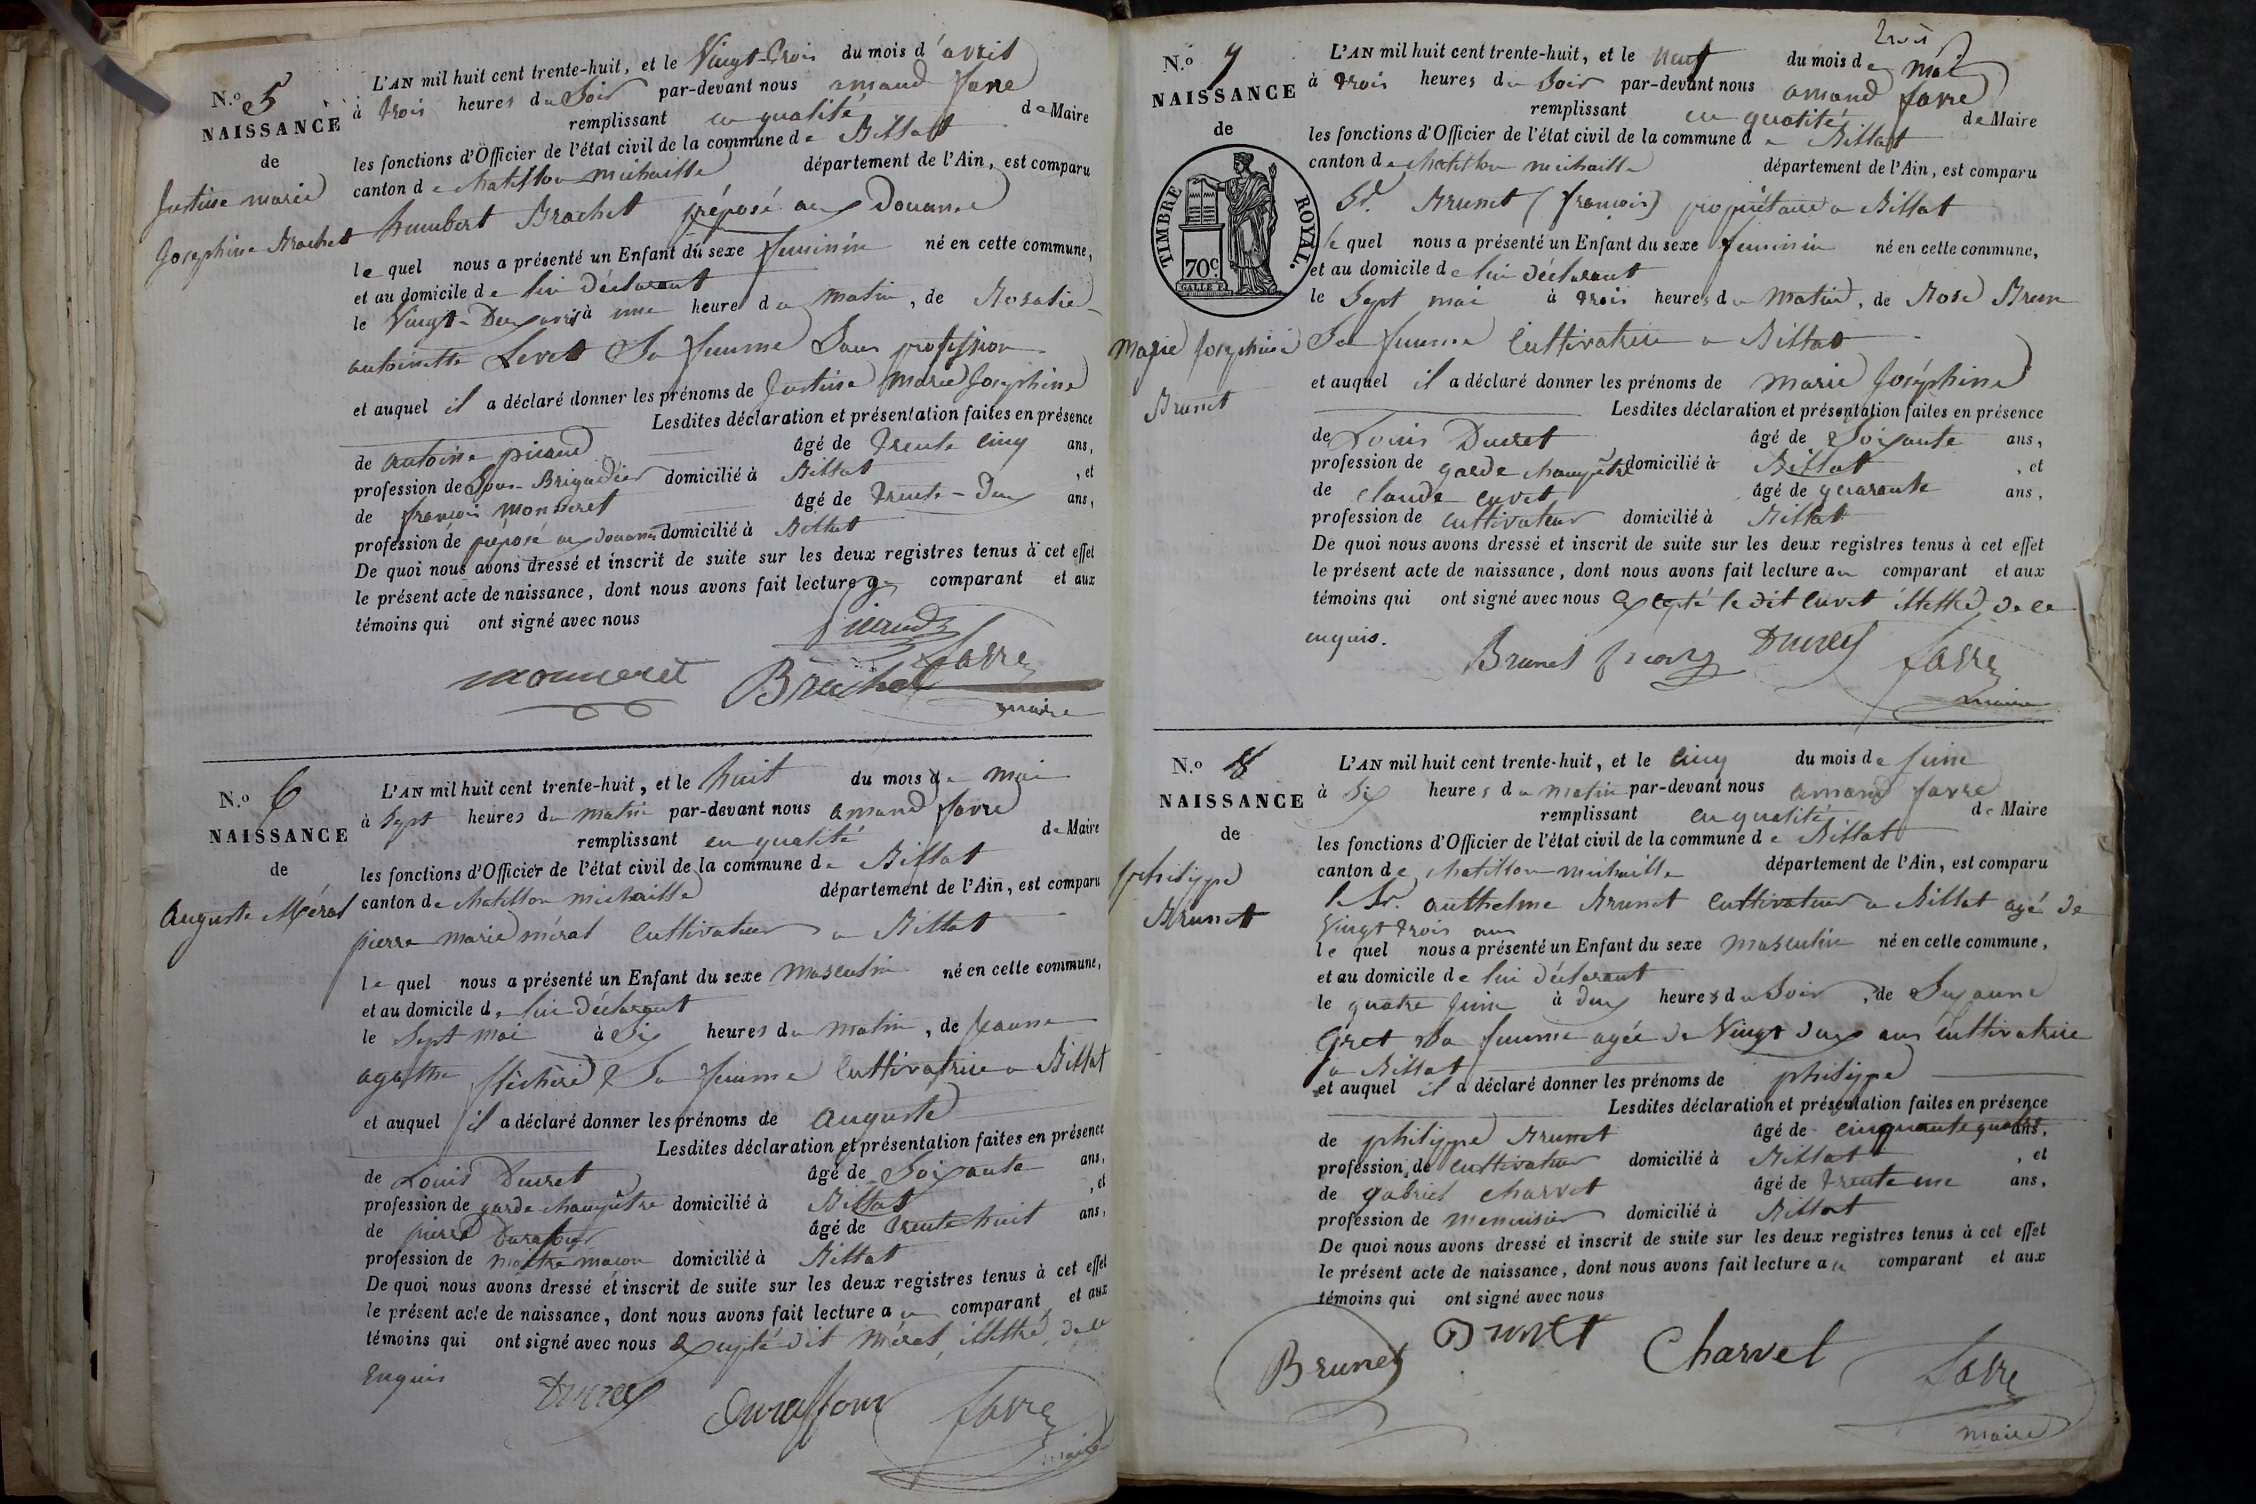 N.o 5
NAISSANCE
de
Justine marie
Josephine Brachet
L'AN mil huit cent trente-huit, et le Vingt-trois du mois d'avril
à trois heures du Soir par-devant nous amand favre
remplissant en qualité de Maire
les fonctions d'Officier de l'état civil de la commune de Billat
canton de chatillon michaille département de l'Ain, est comparu
humbert Brachet préposé aux Douanes
lequel nous a présenté un Enfant du sexe feminin né en cette commune,
et au domicile de lui déclarant
le Vingt-Deux avril à une heure du matin, de Rosalie
antoinette Levet Sa femme Sans profession
et auquel il a déclaré donner les prénoms de Justine Marie Josephine
Lesdites déclaration et présentation faites en présence
de antoine âgé de trente cinq ans,
profession de Sous-Brigadier domicilié à Billat, et
de françois monneret âgé de trente-Deux ans,
profession de préposé aux douanes domicilié à Billat
De quoi nous avons dressé et inscrit de suite sur les deux registres tenus à cet effet
le présent acte de naissance, dont nous avons fait lecture au comparant et aux
témoins qui ont signé avec nous
monneret Brachet favre
maire
N.o 6
NAISSANCE
de
Auguste Méral
L'AN mil huit cent trente-huit, et le huit du mois de mai
à Sept heures du matin par-devant nous amand favre
remplissant en qualité de Maire
les fonctions d'Officier de l'état civil de la commune de Billat
canton de chatillon michaille département de l'Ain, est comparu
pierre marie méral Cultivateur a Billat
lequel nous a présenté un Enfant du sexe Masculin né en cette commune,
et au domicile de lui déclarant
le Sept mai à Six heures du matin, de jeanne
agathe Sa femme Cultivatrice a Billat
et auquel il a déclaré donner les prénoms de Auguste
Lesdites déclaration et présentation faites en présence
de Louis Ducret âgé de Soixante ans,
profession de garde champêtre domicilié à Billat, et
de pierre Duraffour âgé de trente huit ans,
profession de maître maçon domicilié à Billat
De quoi nous avons dressé et inscrit de suite sur les deux registres tenus à cet effet
le présent acte de naissance, dont nous avons fait lecture au comparant et aux
témoins qui ont signé avec nous Excepté dit Méral, illettré, de ce
Enquis
Ducret Duraffour favre
maire
N.o 7
NAISSANCE
de
TIMBRE ROYAL.
70c.
Marie Josephine
Brunet
trois
L'AN mil huit cent trente-huit, et le neuf du mois de mai
à trois heures du Soir par-devant nous amand favre
remplissant en qualité de Maire
les fonctions d'Officier de l'état civil de la commune de Billat
canton de chatillon michaille département de l'Ain, est comparu
Sr. Brunet (françois) propriétaire a Billat
lequel nous a présenté un Enfant du sexe feminin né en cette commune,
et au domicile de lui déclarant
le Sept mai à trois heures du Matin, de Rose Brun
Sa femme Cultivatrice a Billat
et auquel il a déclaré donner les prénoms de Marie Joséphine
Lesdites déclaration et présentation faites en présence
de Louis Ducret âgé de Soixante ans,
profession de garde champêtre domicilié à Billat, et
de Claude Curet âgé de quarante ans,
profession de cultivateur domicilié à Billat
De quoi nous avons dressé et inscrit de suite sur les deux registres tenus à cet effet
le présent acte de naissance, dont nous avons fait lecture au comparant et aux
témoins qui ont signé avec nous Excepté le dit Curet illettré, de ce
enquis.
Brunet Ducret favre
maire
N.o 8
NAISSANCE
de
philippe
Brunet
L'AN mil huit cent trente-huit, et le Cinq du mois de Juin
à Six heures du matin par-devant nous amand favre
remplissant en qualité de Maire
les fonctions d'Officier de l'état civil de la commune de Billat
canton de chatillon michaille département de l'Ain, est comparu
le Sr. anthelme Brunet Cultivateur a Billat agé de
Vingt trois ans
lequel nous a présenté un Enfant du sexe masculin né en cette commune,
et au domicile de lui déclarant
le quatre Juin à deux heures du Soir, de Suzanne
Gret Sa femme agée de Vingt deux ans cultivatrice
a Billat
et auquel il a déclaré donner les prénoms de philippe
Lesdites déclaration et présentation faites en présence
de philippe Brunet âgé de cinquante quatre ans,
profession de cultivateur domicilié à Billat, et
de gabriel charvet âgé de trente une ans,
profession de menuisier domicilié à Billat
De quoi nous avons dressé et inscrit de suite sur les deux registres tenus à cet effet
le présent acte de naissance, dont nous avons fait lecture au comparant et aux
témoins qui ont signé avec nous
Brunet Brunet Charvet favre
maire